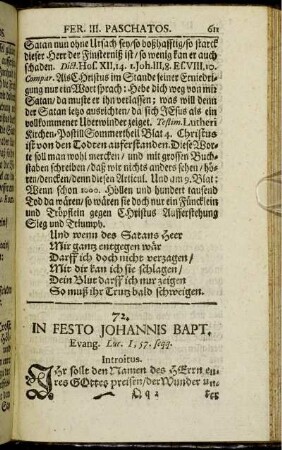 FER. III. PASCHATOS. 611
Satan nun ohne Ursach sey/so boßhafftig/so starck
dieser Herr der Finsterniß ist/ so wenig kan er auch
schaden. Dict. Hos. XII, 14. 1. Joh. III, 8. Ef. VIII, 10.
Compar. Als Christus im Stande seiner Erniedri-
gung nur ein Wort sprach: Hebe dich weg von mir
Satan/ da muste er ihn verlassen; was will denn
der Satan ietzo ausrichten/ da sich JEsus als ein
vollkommener Uberwinder zeiget. Testim. Lutheri
Kirchen-Postill Sommertheil Blat 4. Christus
ist von den Todten auferstanden. Diese Wor-
te soll man wohl mercken/ und mit grossen Buch-
staben schreiben/ daß wir nichts anders sehen/ hö-
ren/dencken/denn diesen Articul. Und am 9. Blat:
Wenn schon 1000. Höllen und hundert tausend
Tod da wären/ so wären sie doch nur ein Füncklein
und Tröpflein gegen Christus Aufferstehung
Sieg und Triumph.
Und wenn des Satans Heer
Mir gantz entgegen wär
Darff ich doch nicht verzagen/
Mit dir kan ich sie schlagen/
Dein Blut darff ich nur zeigen
So muß ihr Trutz bald schweigen.
72.
IN FESTO JOHANNIS BAPT.
Evang. Luc. I, 57. seqq.
Introitus.
Ihr sollt den Namen des HErrn eu-
res GOttes preisen/der Wunder un-
Qq 2 ker